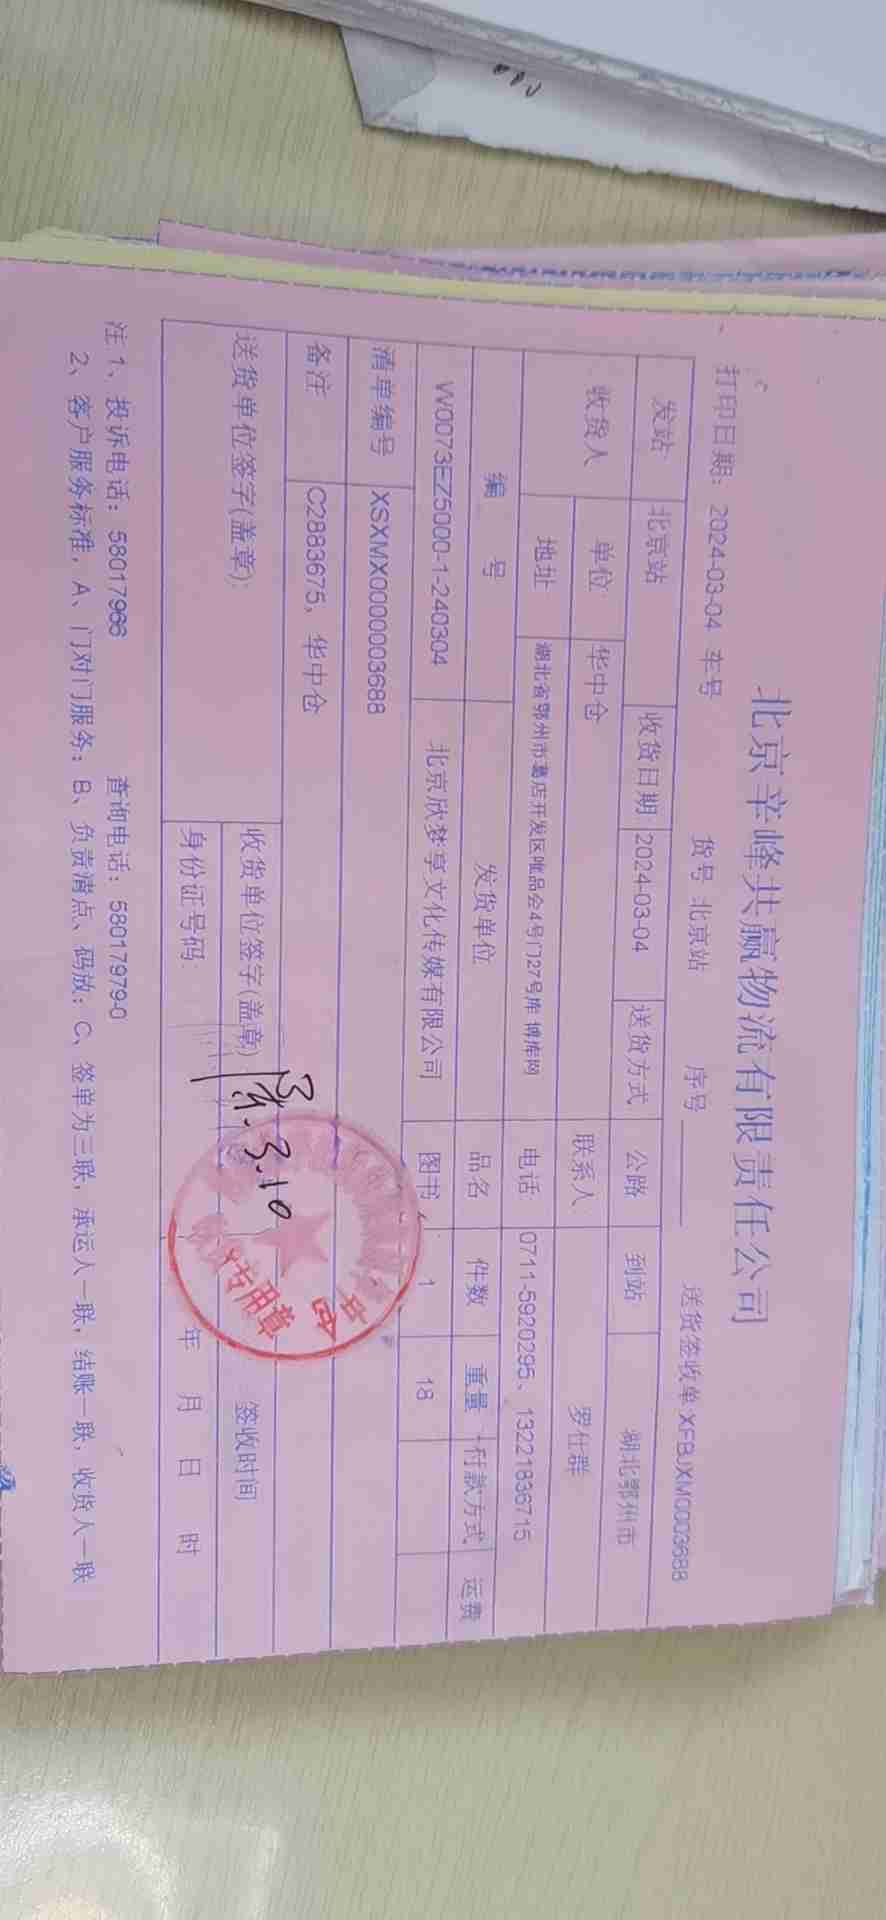 北京羊峰共赢物流有限责任公司
打印日期: 2024-03-04 车号 货号 北京站 序号 送货签收单 XFBJXM0003688
发站 北京站 收货日期 2024-03-04 送货方式 公路 到站 湖北鄂州市
收货人 单位 华中仓 联系人 罗仕群
地址 湖北省鄂州市葛店开发区唯品会4号门27号库 博库网 电话 0711-5920295、13221836715
编 号 发货单位 品名 件数 重量 付款方式 运费
W0073EZ5000-1-240304 北京欣梦享文化传媒有限公司 图书 1 18
清单编号 XSXMX0000003688
备注 C2883675, 华中仓
送货单位签字(盖章): 收货单位签字(盖章) 3.10 签收时间
身份证号码: 年 月 日 时
专用章
注 1、投诉电话: 58017966 查询电话: 58017979-0
2、客户服务标准, A、门对门服务; B、负责清点、码放; C、签单为三联, 承运人一联, 结账一联, 收货人一联